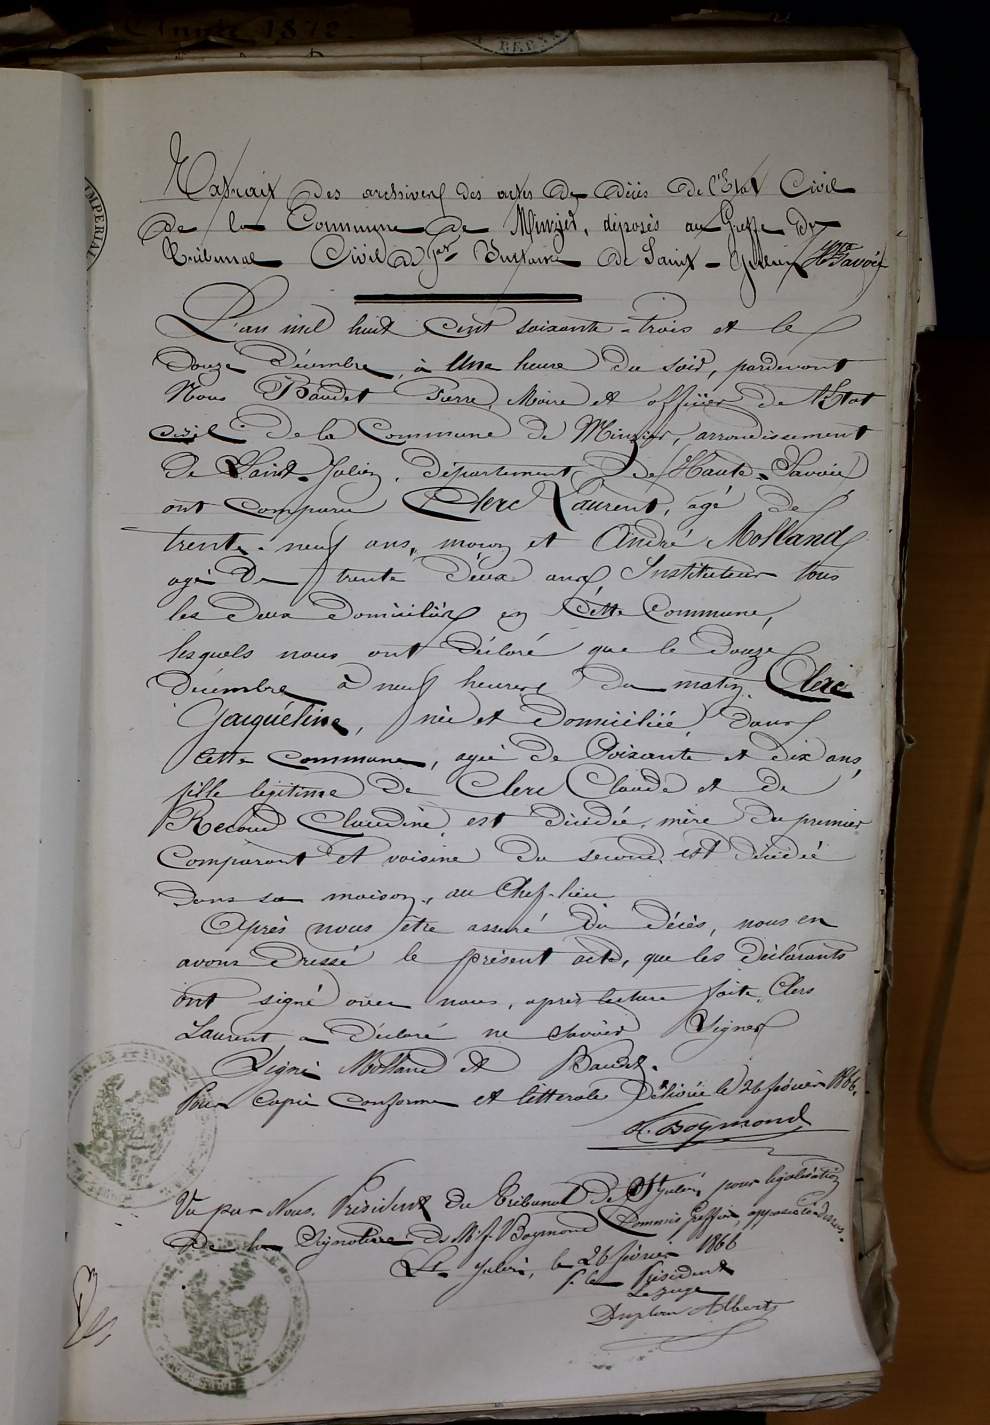 Année 1872
IMPERIAL
Extrait des archives des actes de décès de l'Etat Civil
de la Commune de Minzier, déposés au Greffe du
Tribunal Civil de 1ère Instance de Saint-Julien Hte Savoie
L'an mil huit cent soixante-trois et le
douze Décembre, à Une heure du soir, pardevant
Nous Baudet Pierre, Maire et officier de l'Etat
civil de la Commune de Minzier, arrondissement
de Saint-Julien, département de Haute-Savoie
ont comparu Clerc Laurent, âgé de
trente-neuf ans, maçon et André Molland
agé de trente deux ans Instituteur tous
les deux domiciliés en cette Commune,
lesquels nous ont déclaré que le douze
Décembre à neuf heures du matin, Clerc
Jacquéline, née et domiciliée dans
cette commune, agée de Soixante et dix ans,
fille légitime de Clerc Claude et de
Recoud Claudine est décédée, mère du premier
Comparant et voisine du second, est décédée
dans sa maison, au Chef-lieu
Après nous être assuré du décès, nous en
avons dressé le présent acte, que les déclarants
ont signé avec nous, après lecture faite, Clerc
Laurent a déclaré ne savoir signer
Signé Molland et Baudet.
Pour copie conforme et littérale Délivrée le 26 février 1866.
Boymond
Vu par Nous Président du Tribunal de St Julien pour légalisation
de la Signature de Mr J. Boymond Commis Greffier, apposée ci-dessus.
St. Julien, le 26 février 1866
P. le Président
Le Juge
Duplan Albert